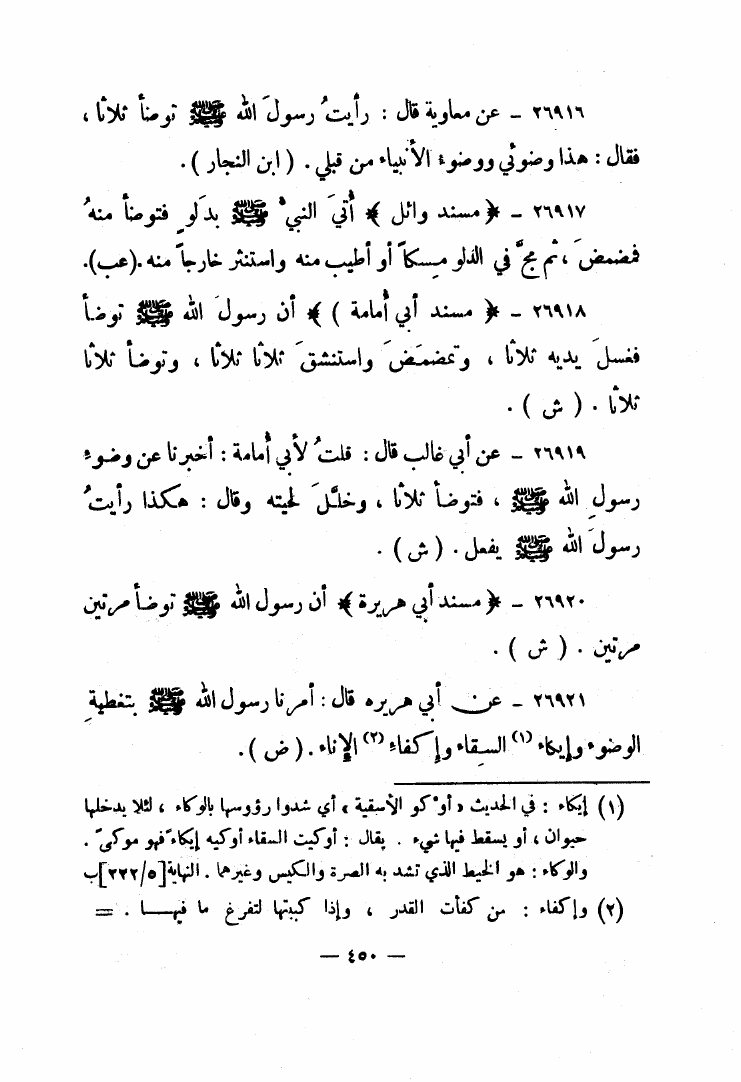 ٢٦٩١٦ ـ عن معاوية قال : رأيتُ رسولَ الله ﷺ توضأ ثلاثا ،
فقال : هذا وضوئي ووضوء الأنبياء من قبلي . ( ابن النجار ) .
٢٦٩١٧ ـ ﴿ مسند وائل ﴾ أُتيَ النبيُّ ﷺ بدَلوٍ فتوضأ منهُ
فمضمضَ ، ثم مجَّ في الدلو مِسكاً أو أطيب منه واستنثر خارجاً منه .(عب).
٢٦٩١٨ ـ ﴿ مسند أبي أُمامة ) ﴾ أن رسولَ الله ﷺ توضأ
فغسلَ يديه ثلاثا ، وتمضمَضَ واستنشقَ ثلاثا ثلاثا ، وتوضأ ثلاثا
ثلاثا . ( ش ) .
٢٦٩١٩ ـ عن أبي غالب قال : قلتُ لأبي أُمامة : أخبرنا عن وضوءِ
رسولِ الله ﷺ ، فتوضأ ثلاثا ، وخلَّلَ لحيته وقال : هكذا رأيتُ
رسولَ الله ﷺ يفعل . ( ش ) .
٢٦٩٢٠ ـ ﴿ مسند أبي هريرة ﴾ أن رسول الله ﷺ توضأ مرتين
مرتين . ( ش ) .
٢٦٩٢١ ـ عن أبي هريره قال : أمرنا رسول الله ﷺ بتغطيةِ
الوضوء وإيكاء (١) السِقاء وإكفاءِ (٢) الإناء . ( ض ) .
(١) إيكاء : في الحديث « أوْكو الأسقية » أي شدوا رؤوسها بالوكاء ، لئلا يدخلها
حيوان ، أو يسقط فيها شيء . يقال : أوكيت السقاء أوكيه إيكاءً فهو موكىً .
والوكاء : هو الخيط الذي تشد به الصرة والكيس وغيرهما . النهاية [٥/٢٢٢] ب
(٢) وإكفاء : من كفأت القدر ، وإذا كببتها لتفرغ ما فيها . =
— ٤٥٠ —